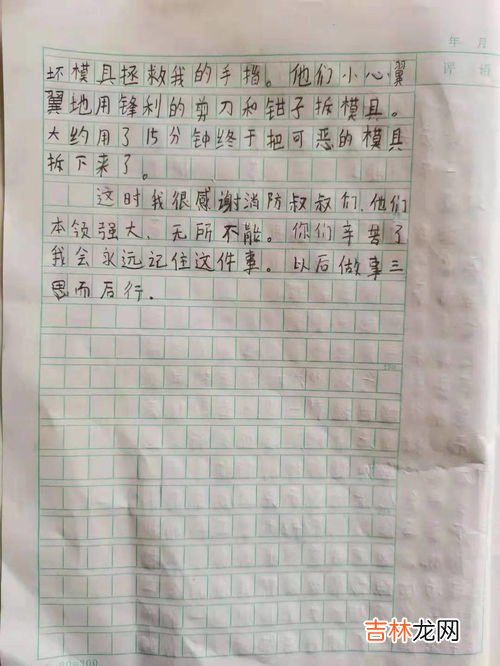 年 月
评 语
坏模具拯救我的手指。他们小心翼
翼地用锋利的剪刀和钳子拆模具。
大约用了15分钟终于把可恶的模具
拆下来了。
这时我很感谢消防叔叔们,他们
本领强大、无所不能。你们辛苦了
我会永远记住这件事。以后做事三
思而后行.
吉林龙网